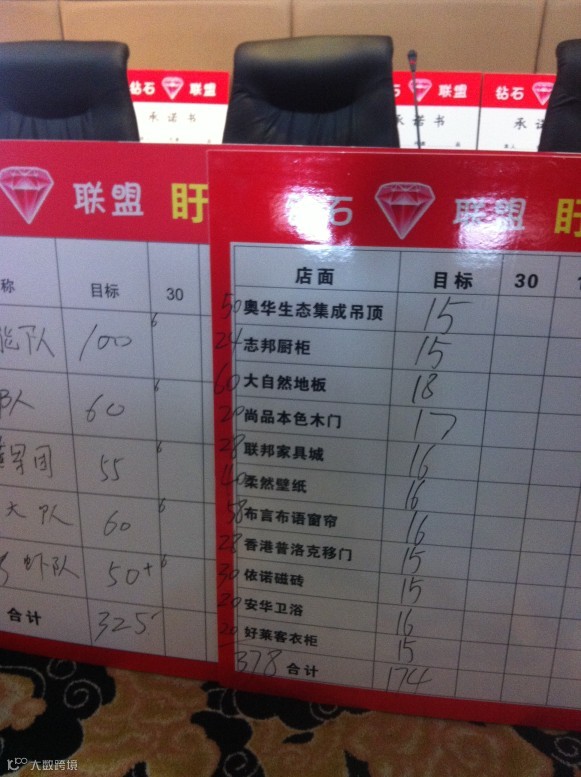 钻石 联盟
承诺书
联盟
承诺书
钻石 联盟
承诺
联盟 盱
称 目标 30
100 6
队 60 6
55 6
大队 60 6
虾队 50+ 6
合计 325
石 联盟 盱
店面 目标 30
50 奥华生态集成吊顶 15
24 志邦厨柜 15
60 大自然地板 18
20 尚品本色木门 17
28 联邦家具城 16
40 柔然壁纸 16
58 布言布语窗帘 16
28 香港普洛克移门 15
30 依诺磁砖 15
20 安华卫浴 16
20 好莱客衣柜 15
378 合计 174
大数跨境